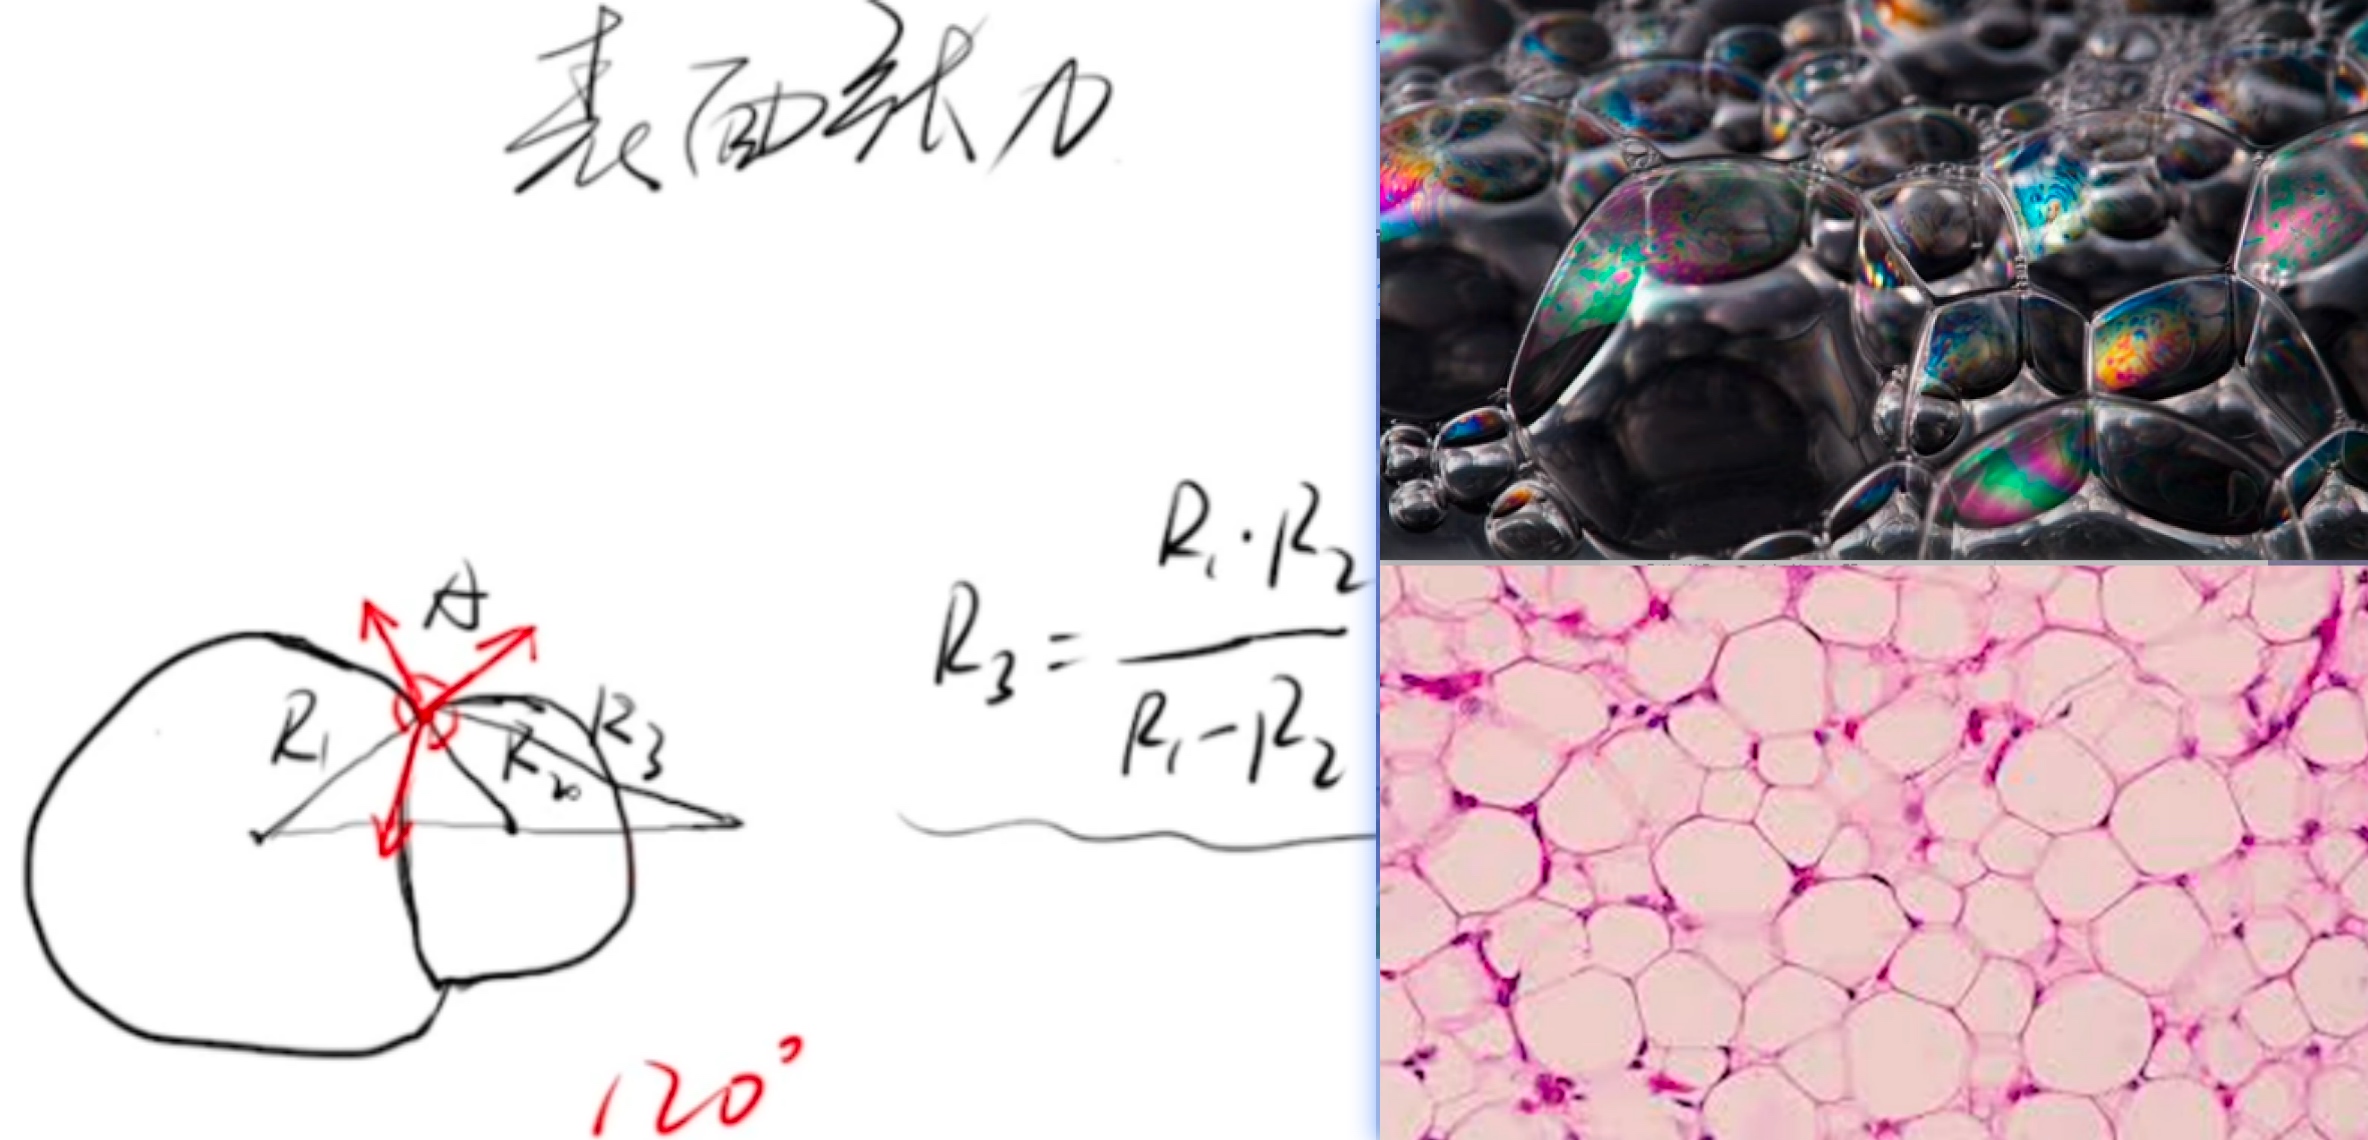 表面张力
A
R₁
R₂
R₃
R₃ = R₁·R₂ / R₁-R₂
120°